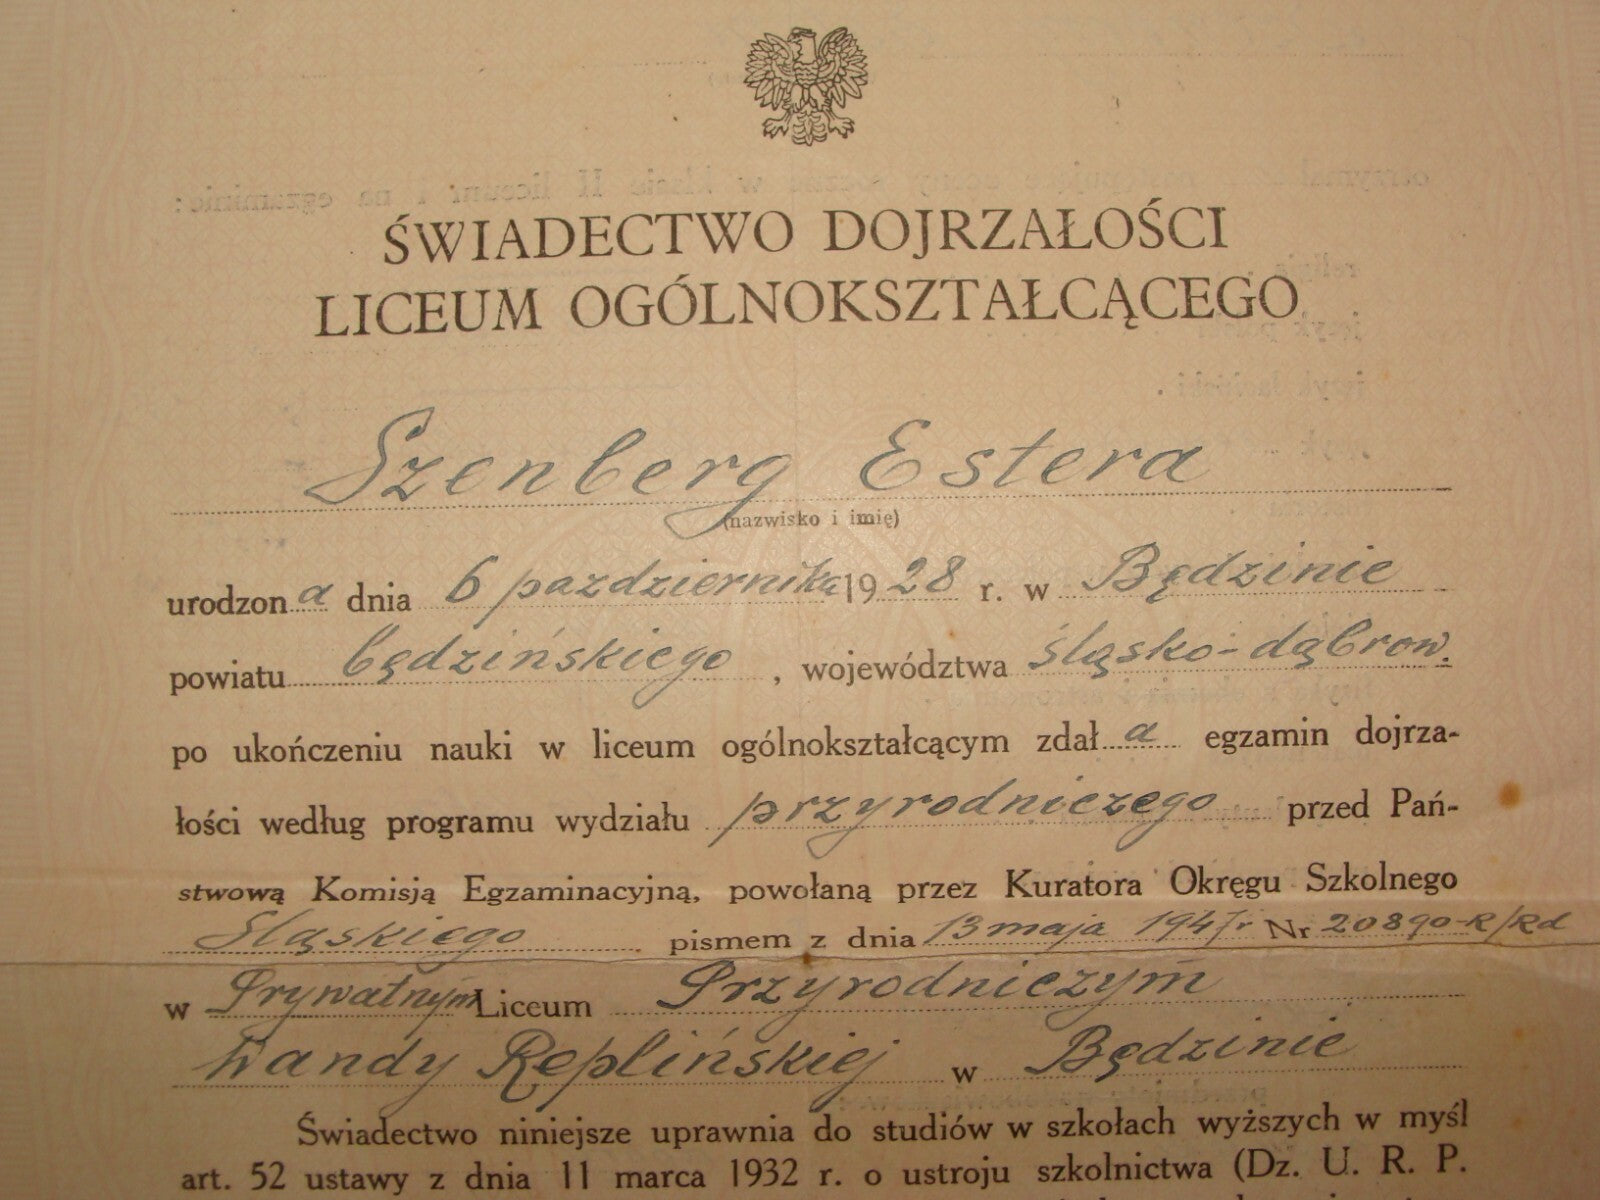 ŚWIADECTWO DOJRZAŁOŚCI
LICEUM OGÓLNOKSZTAŁCĄCEGO
Szenberg Estera
(nazwisko i imię)
urodzona dnia 6 pazdziernika 1928 r. w Będzinie
powiatu będzińskiego, województwa śląsko-dąbrow.
po ukończeniu nauki w liceum ogólnokształcącym zdała egzamin dojrza-
łości według programu wydziału przyrodniczego przed Pań-
stwową Komisją Egzaminacyjną, powołaną przez Kuratora Okręgu Szkolnego
Śląskiego pismem z dnia 13 maja 1947r Nr 20890-R/Rd
w Prywatnym Liceum Przyrodniczym
Wandy Replińskiej w Będzinie
Świadectwo niniejsze uprawnia do studiów w szkołach wyższych w myśl
art. 52 ustawy z dnia 11 marca 1932 r. o ustroju szkolnictwa (Dz. U. R. P.